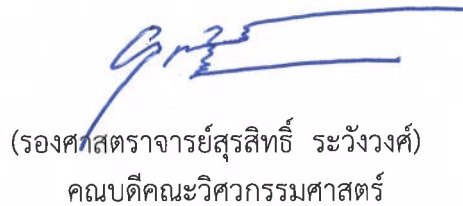 (รองศาสตราจารย์สุรสิทธิ์ ระวังวงศ์)
คณบดีคณะวิศวกรรมศาสตร์